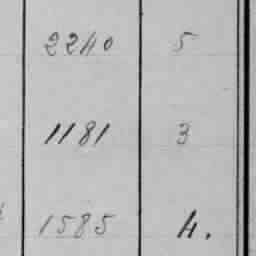 2240 5
1181 3
1585 4.